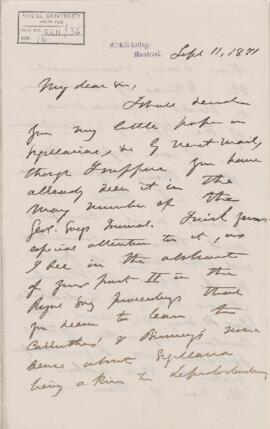 McGILL UNIVERSITY
ARCHIVES
ACC. NO. 2211/36
REF. 16
McGill College,
Montreal.
Sept 11, 1871
My dear sir,
I shall send
you my little paper on
Sigillaria, &c by next mail,
though I suppose you have
already seen it in the
May number of the
Geol. Soc's Journal. I wish your
especial attention to it, as
I see in the abstract
of your part II in the
Royal Soc Proceedings that
you seem to lean to
Carruthers' & Binney's
about Sigillaria
being akin to Lepidodendron